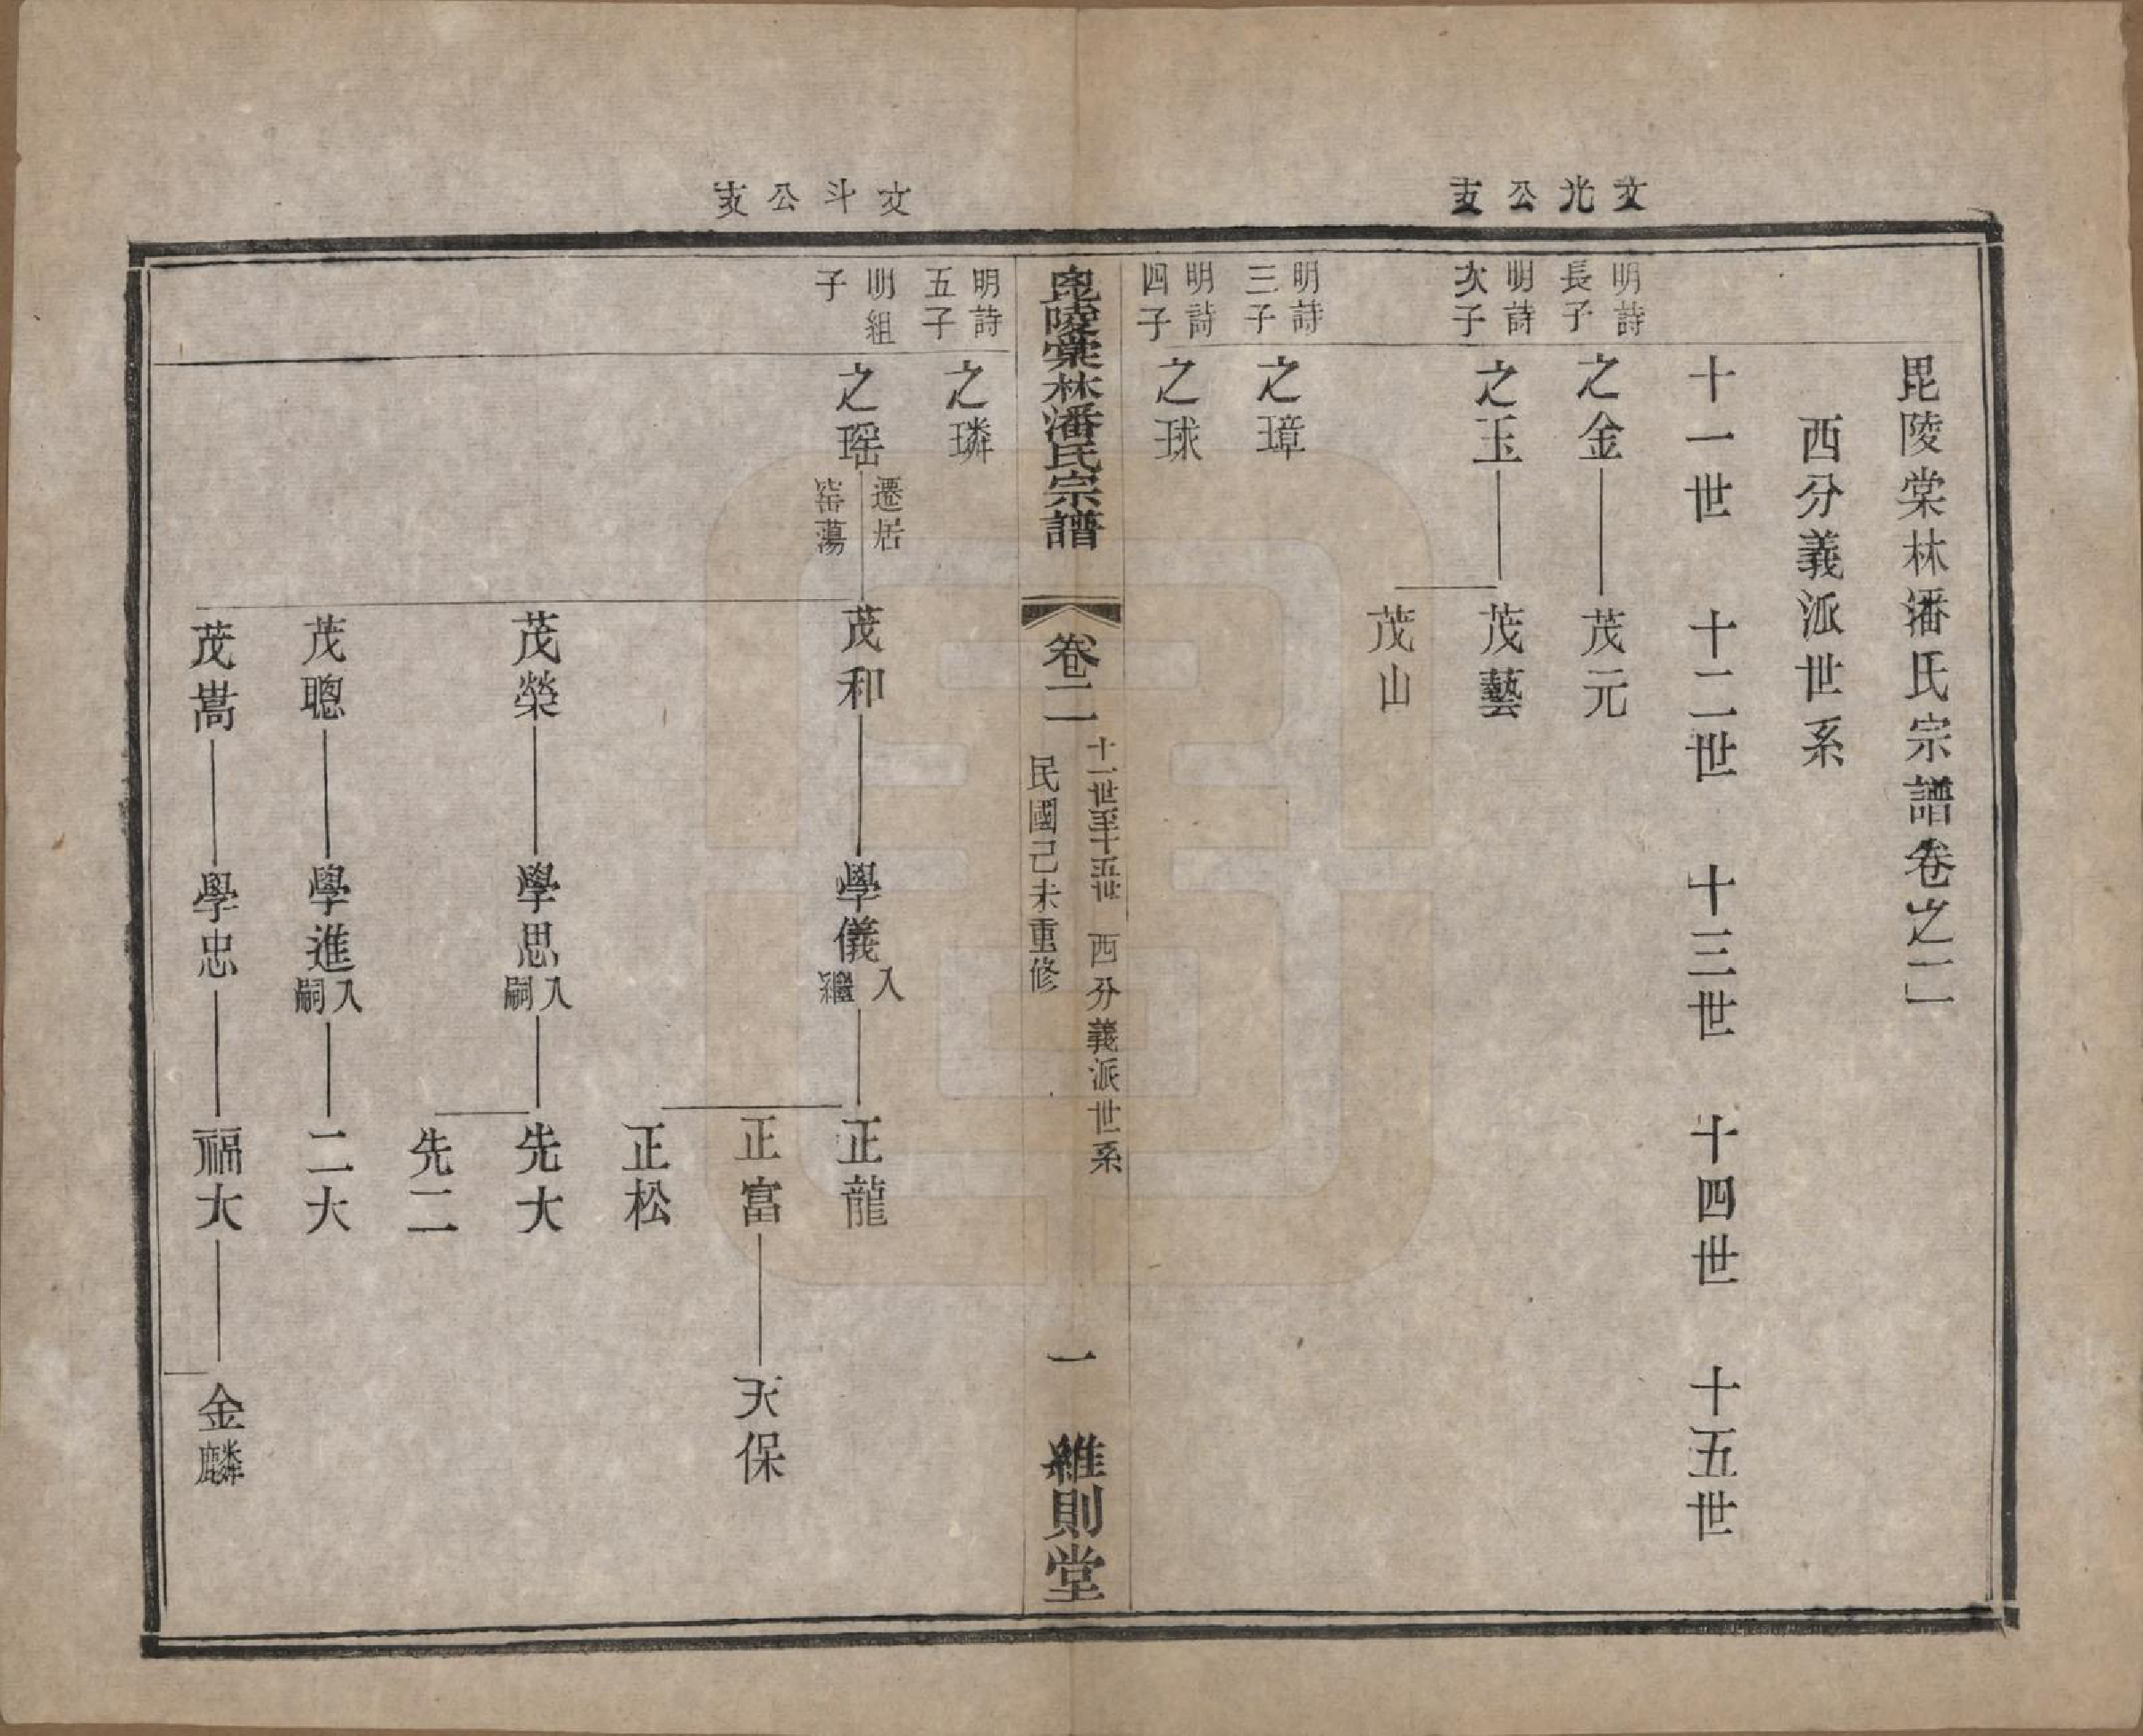 文光公支
毘陵棠林潘氏宗譜卷之二
西分義派世系
十一世　十二世　十三世　十四世　十五世
明詩長子　之金　茂元
明詩次子　之玉　茂藝
茂山
明詩三子　之璋
明詩四子　之球
毘陵棠林潘氏宗譜　卷二　十一世至十五世　西分義派世系　民國己未重修　一　維則堂
文斗公支
明詩五子　之璘
明組子　之瑶　遷居窑蕩　茂和　學儀　入繼　正龍
正富　天保
正松
茂榮　學思　入嗣　先大
先二
茂聰　學進　入嗣　二大
茂嵩　學忠　福大　金麟